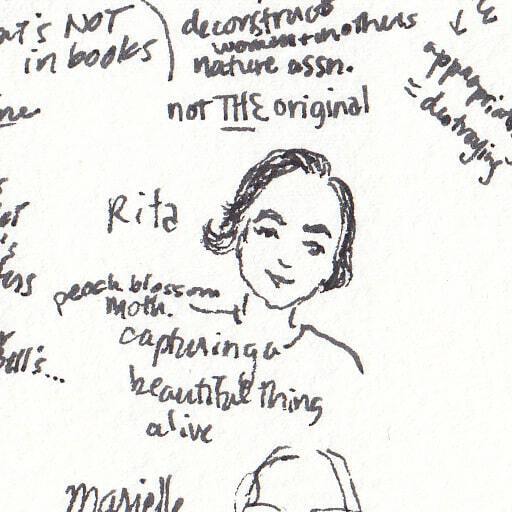 what's NOT
in books
deconstruct
women + mothers
nature assn.
not THE original
appropriating
= destroying
Rita
peach blossom
moth.
capturing a
beautiful thing
alive
Marielle